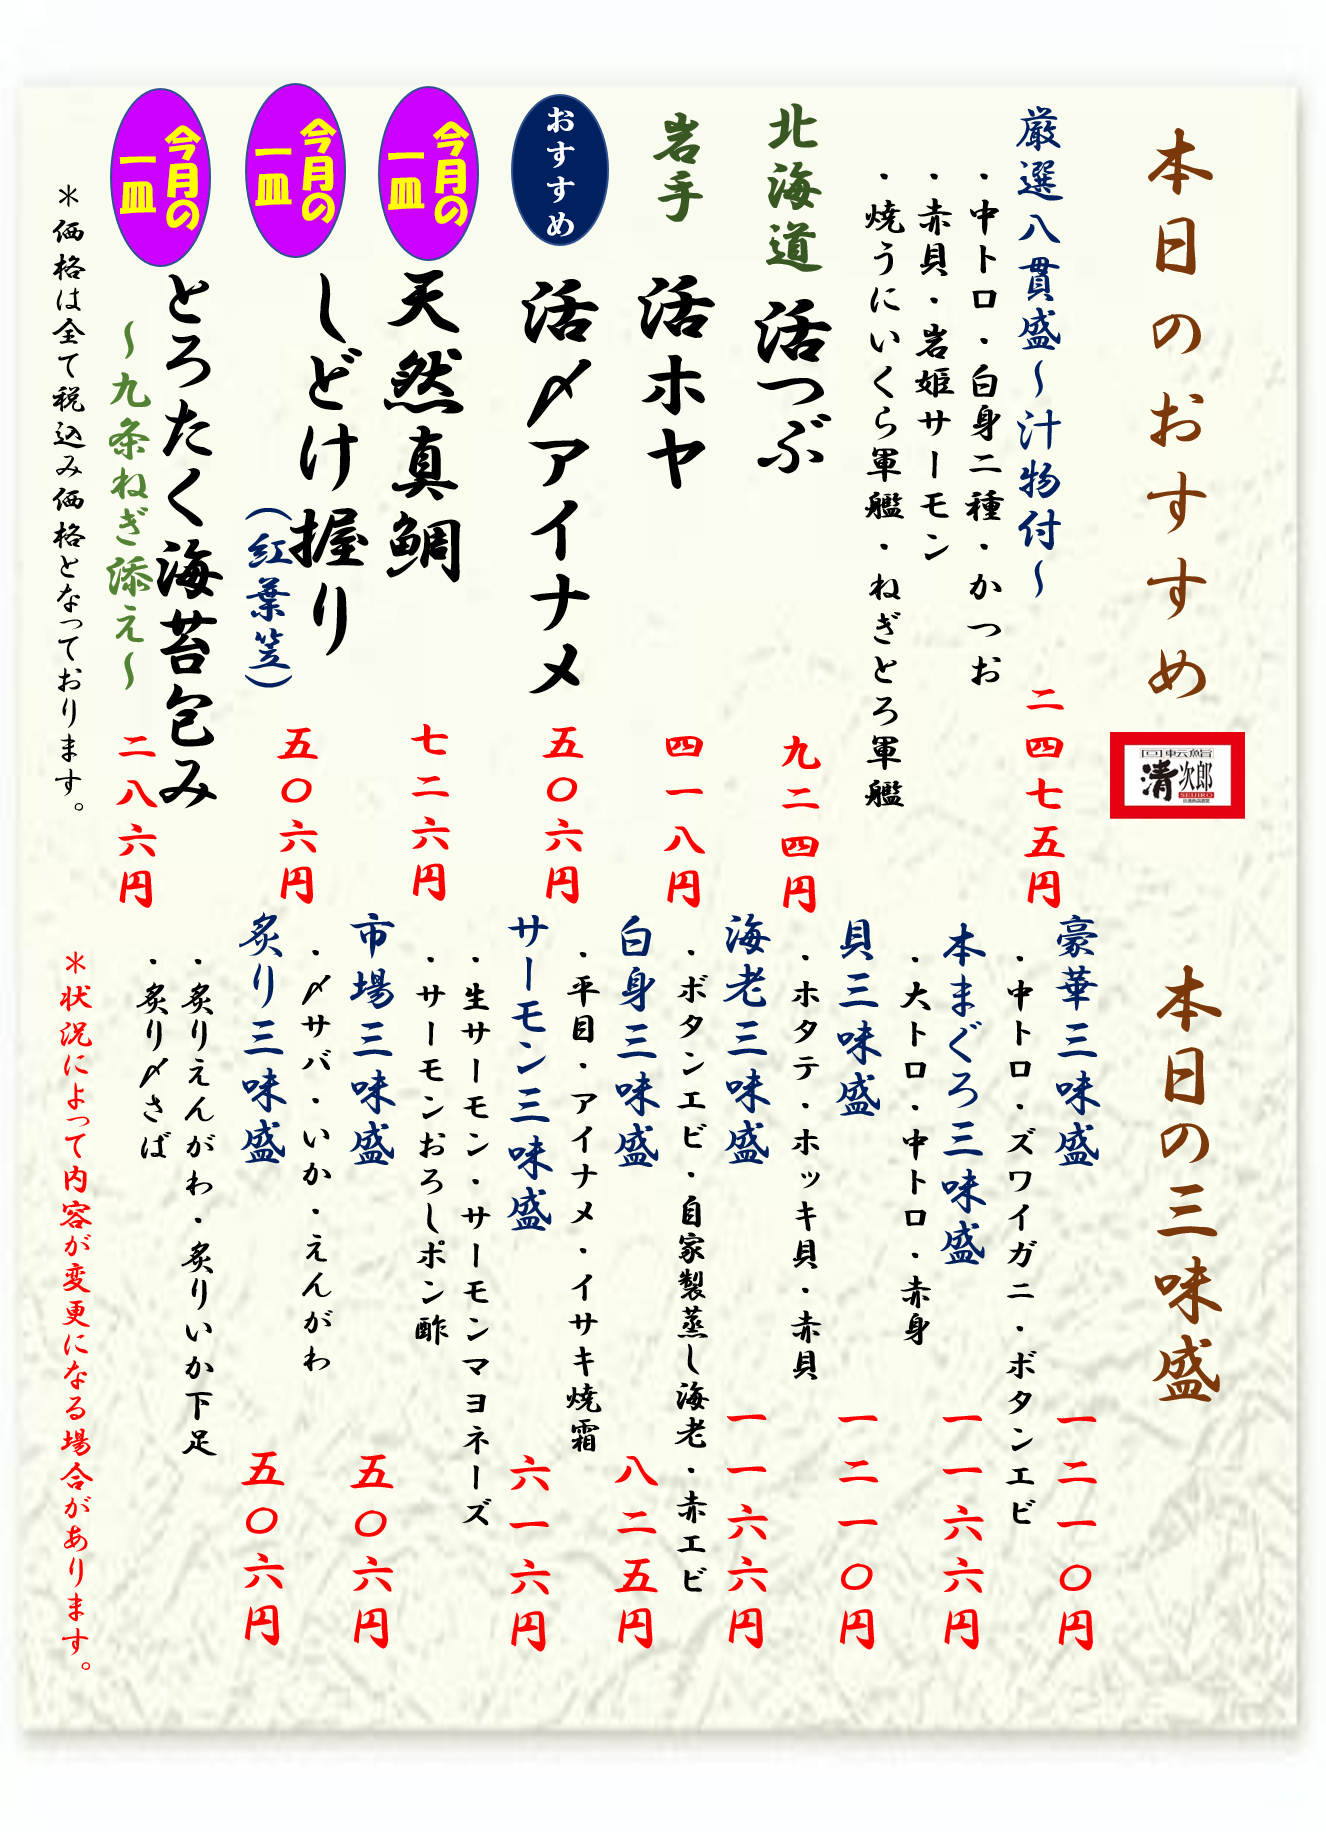 本日のおすすめ
回転鮨
清次郎
SEIJIRO
厳選八貫盛～汁物付～
二四七五円
・中トロ・白身二種・かつお
・赤貝・岩姫サーモン
・焼うにいくら軍艦・ねぎとろ軍艦
北海道
活つぶ
九二四円
岩手
活ホヤ
四一八円
おすすめ
活〆アイナメ
五〇六円
今月の
一皿
天然真鯛
七二六円
今月の
一皿
しどけ握り
（紅葉笠）
五〇六円
今月の
一皿
とろたく海苔包み
～九条ねぎ添え～
二八六円
＊価格は全て税込み価格となっております。
本日の三味盛
豪華三味盛
一二一〇円
・中トロ・ズワイガニ・ボタンエビ
本まぐろ三味盛
一一六六円
・大トロ・中トロ・赤身
貝三味盛
一二一〇円
・ホタテ・ホッキ貝・赤貝
海老三味盛
一一六六円
・ボタンエビ・自家製蒸し海老・赤エビ
白身三味盛
八二五円
・平目・アイナメ・イサキ焼霜
サーモン三味盛
六一六円
・生サーモン・サーモンマヨネーズ
・サーモンおろしポン酢
市場三味盛
五〇六円
・〆サバ・いか・えんがわ
炙り三味盛
五〇六円
・炙りえんがわ・炙りいか下足
・炙り〆さば
＊状況によって内容が変更になる場合があります。